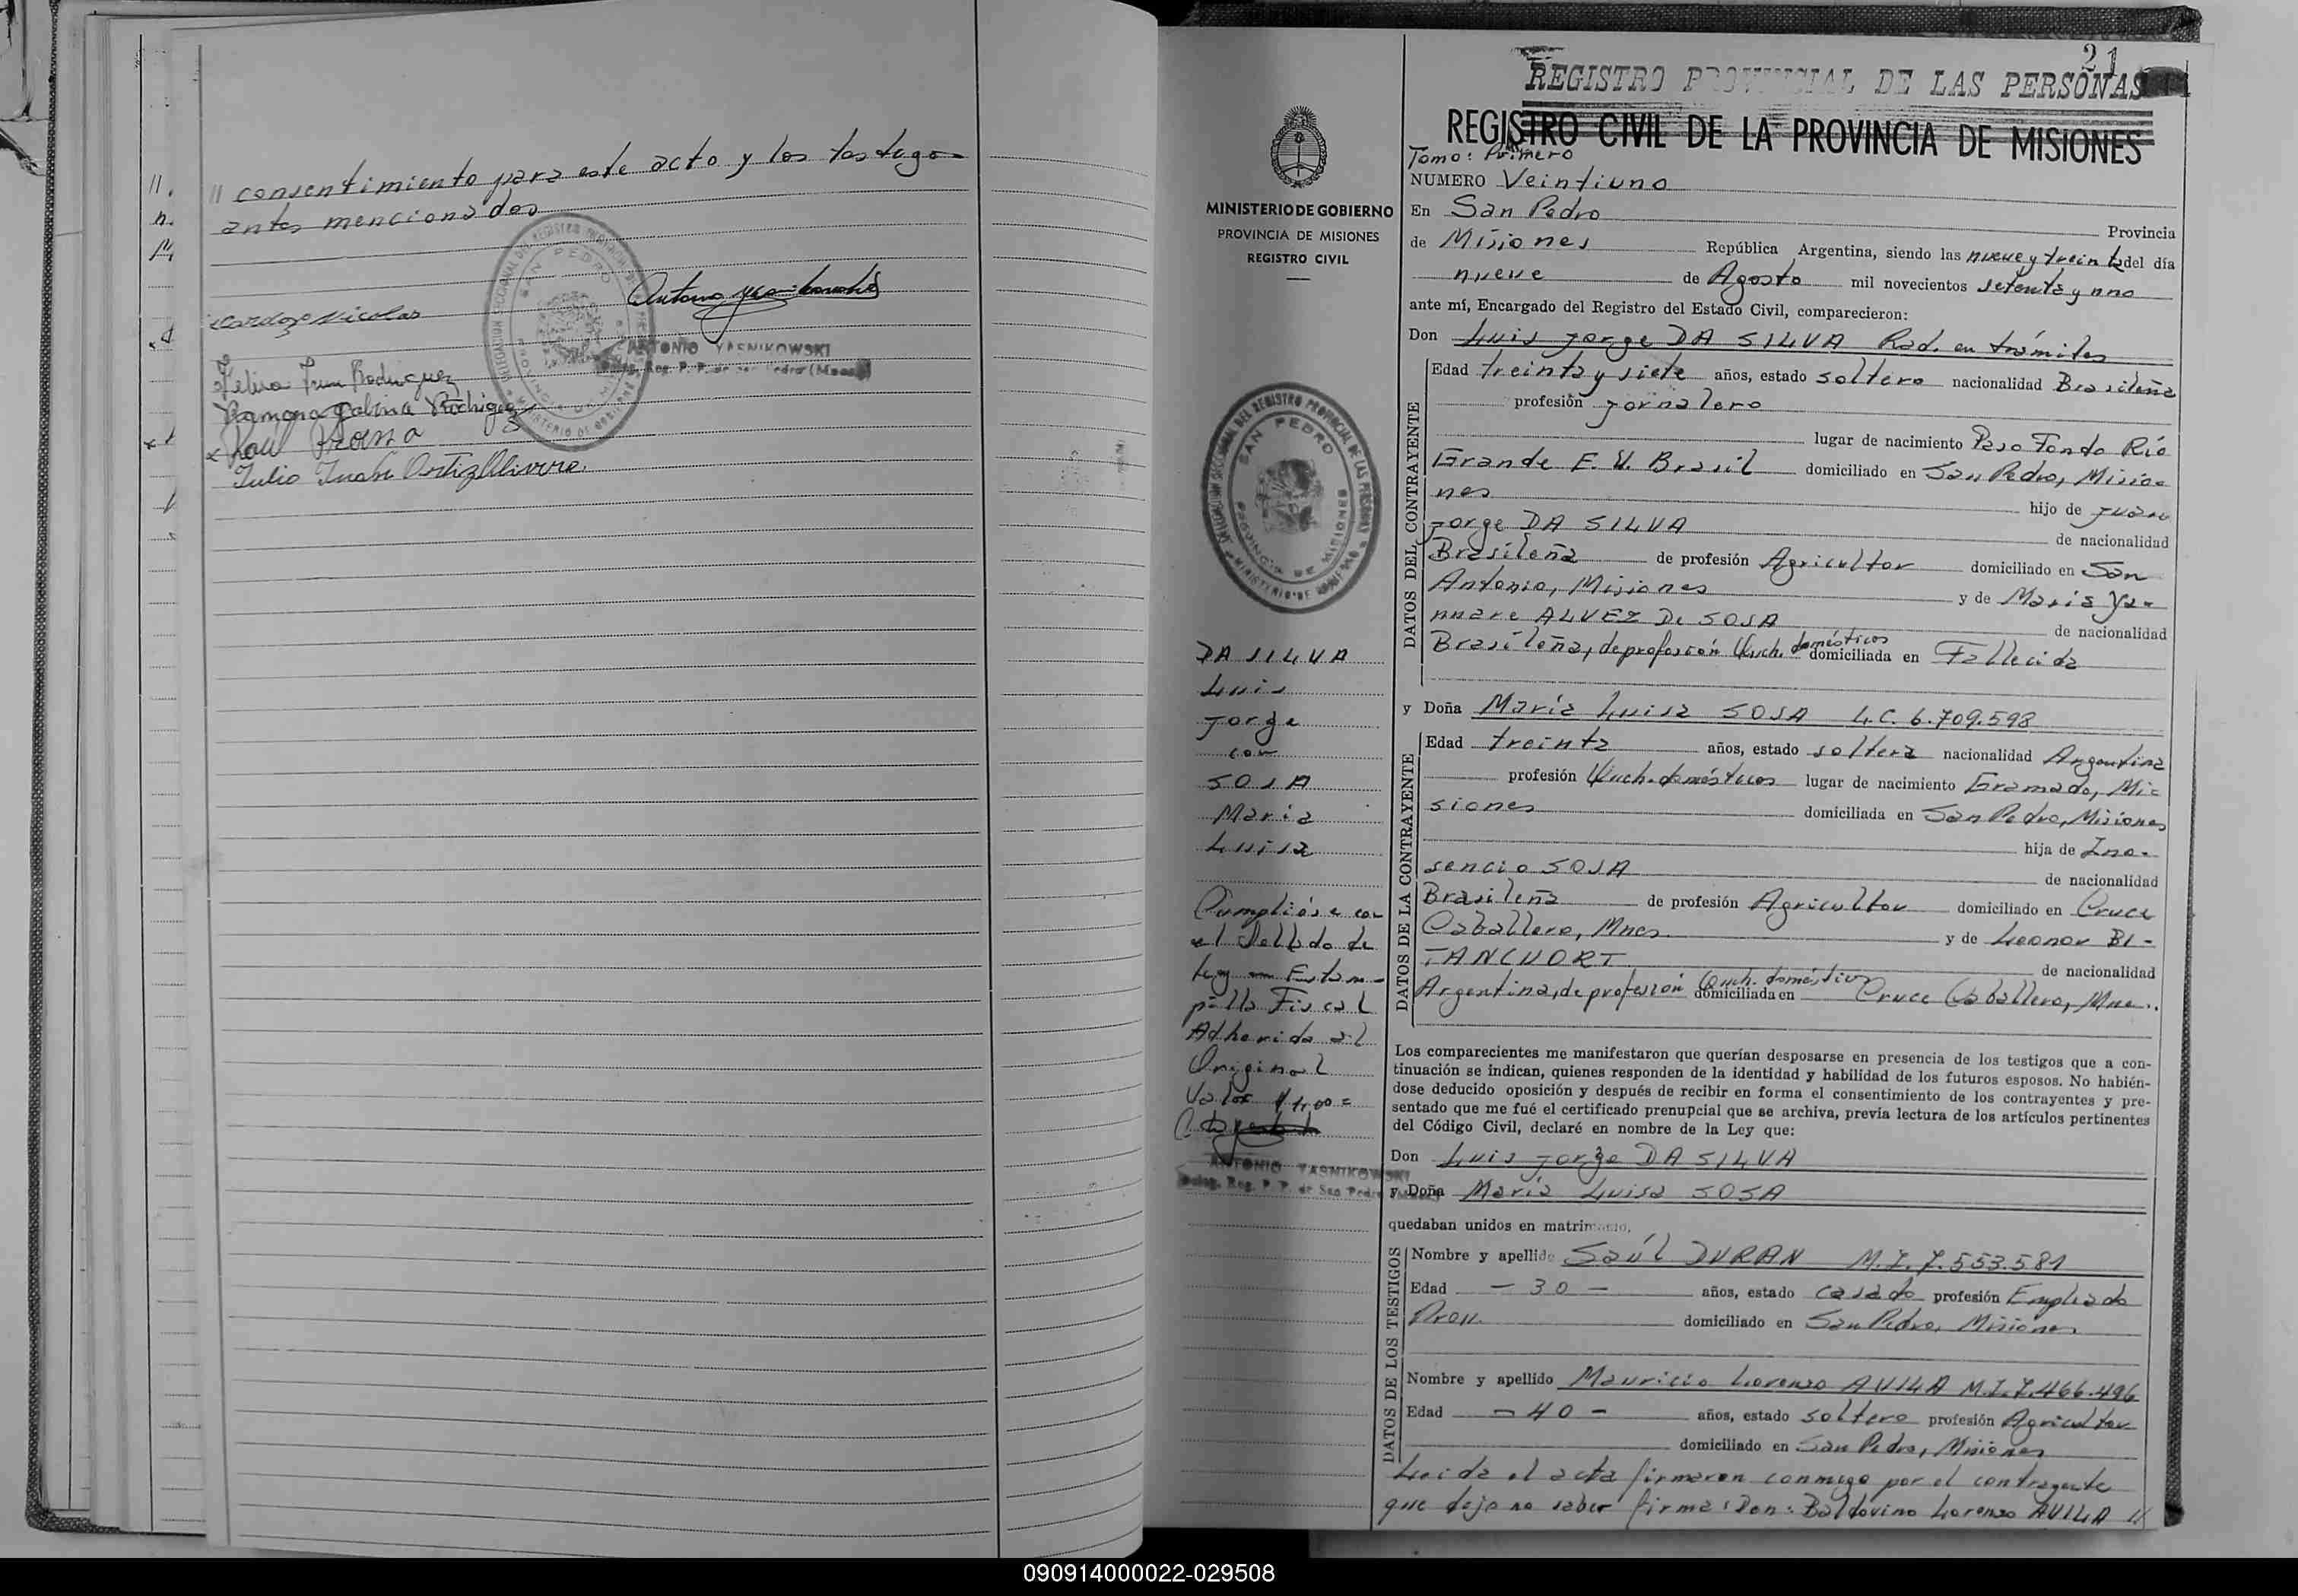 // consentimiento para este acto y los testigos
antes mencionados
Cardozo Nicolas
ANTONIO YASNIKOWSKI
Ramona Galina Rodriguez
Julio Ortiz
21
REGISTRO PROVINCIAL DE LAS PERSONAS
REGISTRO CIVIL DE LA PROVINCIA DE MISIONES
Tomo: Primero
NUMERO Veintiuno
MINISTERIO DE GOBIERNO
PROVINCIA DE MISIONES
REGISTRO CIVIL
En San Pedro Provincia
de Misiones República Argentina, siendo las nueve y treinta del día
nueve de Agosto mil novecientos setenta y uno
ante mí, Encargado del Registro del Estado Civil, comparecieron:
Don Luis Jorge DA SILVA Rad. en trámites
DATOS DEL CONTRAYENTE
Edad treinta y siete años, estado soltero nacionalidad Brasileña
profesión Jornalero
lugar de nacimiento Paso Fondo Río
Grande E.U. Brasil domiciliado en San Pedro, Misio-
nes hijo de Juan
Jorge DA SILVA de nacionalidad
Brasileña de profesión Agricultor domiciliado en San
Antonio, Misiones y de Maria Ya-
nuare ALVEZ De SOSA de nacionalidad
Brasileña, de profesión Queh. domésticos domiciliada en Fallecida
y Doña María Luisa SOSA L.C. 6.709.598
DATOS DE LA CONTRAYENTE
Edad treinta años, estado soltera nacionalidad Argentina
profesión Queh. domésticos lugar de nacimiento Gramado, Mi-
siones domiciliada en San Pedro, Misiones
hija de Ino-
sencio SOSA de nacionalidad
Brasileña de profesión Agricultor domiciliado en Cruce
Caballero, Mnes. y de Leonor BI-
TANCUORT de nacionalidad
Argentina, de profesión Queh. doméstico domiciliada en Cruce Caballero, Mnes.
SAN PEDRO
PROVINCIA DE MISIONES
DA SILVA
Luis
Jorge
con
SOSA
Maria
Luisa
Cumplióse con
el Sellado de
Ley en Estam-
pilla Fiscal
Adherida al
Original
Valor $ 11,00=
ANTONIO YASNIKOWSKI
Deleg. Reg. P. P. de San Pedro
Los comparecientes me manifestaron que querían desposarse en presencia de los testigos que a con-
tinuación se indican, quienes responden de la identidad y habilidad de los futuros esposos. No habién-
dose deducido oposición y después de recibir en forma el consentimiento de los contrayentes y pre-
sentado que me fué el certificado prenupcial que se archiva, previa lectura de los artículos pertinentes
del Código Civil, declaré en nombre de la Ley que:
Don Luis Jorge DA SILVA
y Doña María Luisa SOSA
quedaban unidos en matrimonio,
DATOS DE LOS TESTIGOS
Nombre y apellido Saúl DURAN M.I. 7.553.581
Edad - 30 - años, estado casado profesión Empleado
Prov. domiciliado en San Pedro, Misiones
Nombre y apellido Mauricio Lorenzo AVILA M.I. 7.466.496
Edad - 40 - años, estado soltero profesión Agricultor
domiciliado en San Pedro, Misiones
Leída el acta firmaron conmigo por el contrayente
que dijo no saber firmar Don: Baldovino Lorenzo AVILA //
090914000022-029508